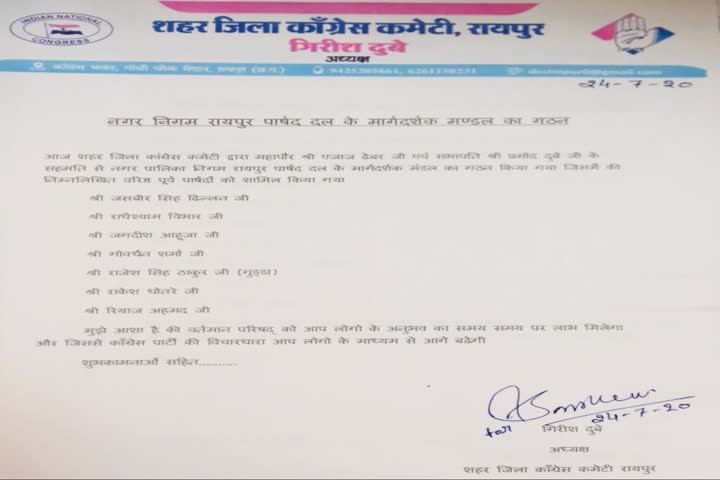 INDIAN NATIONAL
CONGRESS
शहर जिला काँग्रेस कमेटी, रायपुर
गिरीश दुबे
अध्यक्ष
काँग्रेस भवन, गाँधी चौक मैदान, रायपुर (छ.ग.)
24-7-20
नगर निगम रायपुर पार्षद दल के मार्गदर्शक मण्डल का गठन
आज शहर जिला कांग्रेस कमेटी द्वारा महापौर श्री एजाज ढेबर जी एवं सभापति श्री प्रमोद दुबे जी के
सहमति से नगर पालिका निगम रायपुर पार्षद दल के मार्गदर्शक मंडल का गठन किया गया जिसमें की
निम्नलिखित वरिष्ठ पूर्व पार्षदों को शामिल किया गया
श्री जसबीर सिंह ढिल्लन जी
श्री राधेश्याम विभार जी
श्री जगदीश आहूजा जी
श्री गोवर्धन शर्मा जी
श्री राजेश सिंह ठाकुर जी (गुड्डा)
श्री राकेश धोतरे जी
श्री रियाज अहमद जी
मुझे आशा है की वर्तमान परिषद् को आप लोगो के अनुभव का समय समय पर लाभ मिलेगा
और जिससे काँग्रेस पार्टी की विचारधारा आप लोगो के माध्यम से आगे बढेगी
शुभकामनाओं सहित..........
24-7-20
for गिरीश दुबे
अध्यक्ष
शहर जिला काँग्रेस कमेटी रायपुर